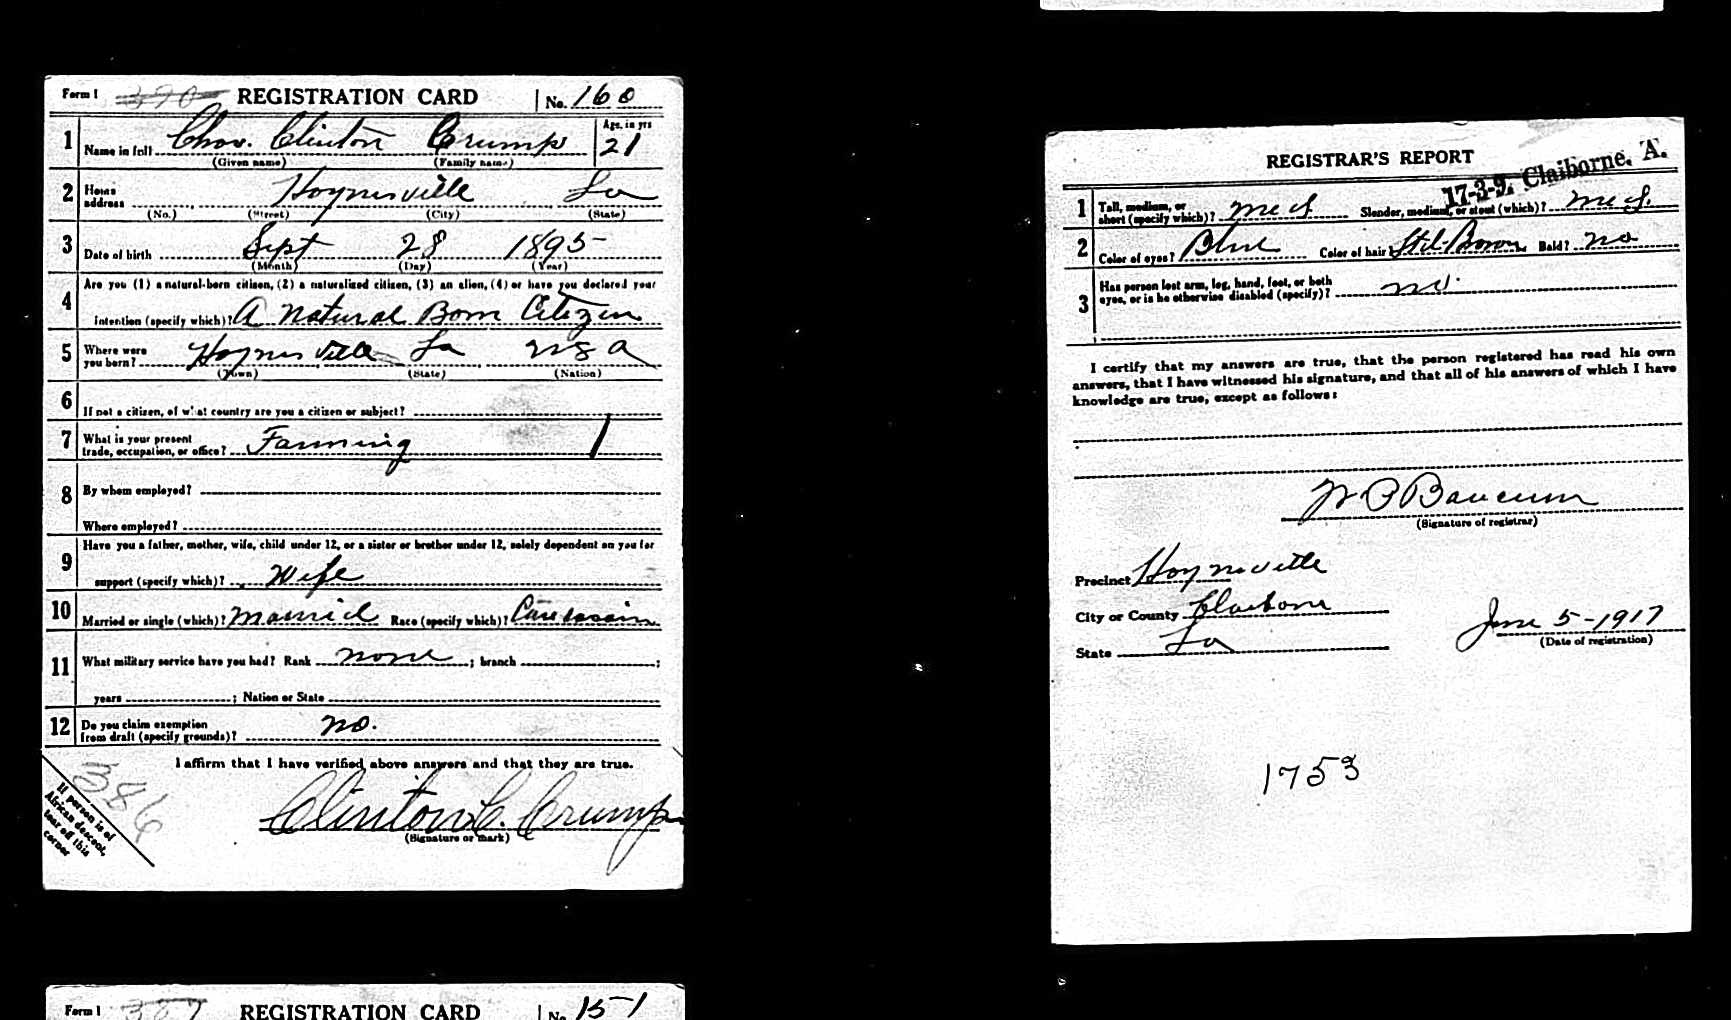 Form 1 390 REGISTRATION CARD No. 160
1 Name in full Chas. Clinton Crump Age, in yrs 21
(Given name) (Family name)
2 Home address Haynesville La
(No.) (Street) (City) (State)
3 Date of birth Sept 28 1895
(Month) (Day) (Year)
4 Are you (1) a natural-born citizen, (2) a naturalized citizen, (3) an alien, (4) or have you declared your
intention (specify which)? A Natural Born Citizen
5 Where were you born? Haynesville La USA
(Town) (State) (Nation)
6 If not a citizen, of what country are you a citizen or subject?
7 What is your present trade, occupation, or office? Farming 1
8 By whom employed?
Where employed?
9 Have you a father, mother, wife, child under 12, or a sister or brother under 12, solely dependent on you for
support (specify which)? Wife
10 Married or single (which)? Married Race (specify which)? Caucasian
11 What military service have you had? Rank none ; branch ;
years ; Nation or State
12 Do you claim exemption from draft (specify grounds)? no.
I affirm that I have verified above answers and that they are true.
386
If person is of
African descent,
tear off this
corner
Clinton C. Crump
(Signature or mark)
Form 1 387 REGISTRATION CARD No. 151
REGISTRAR'S REPORT
17-3-9. Claiborne. A.
1 Tall, medium, or short (specify which)? med Slender, medium, or stout (which)? med.
2 Color of eyes? Blue Color of hair? Bald? no
3 Has person lost arm, leg, hand, foot, or both
eyes, or is he otherwise disabled (specify)? no.
I certify that my answers are true, that the person registered has read his own
answers, that I have witnessed his signature, and that all of his answers of which I have
knowledge are true, except as follows:
W P Baucum
(Signature of registrar)
Precinct Haynesville
City or County Claiborne
State La
June 5-1917
(Date of registration)
1753